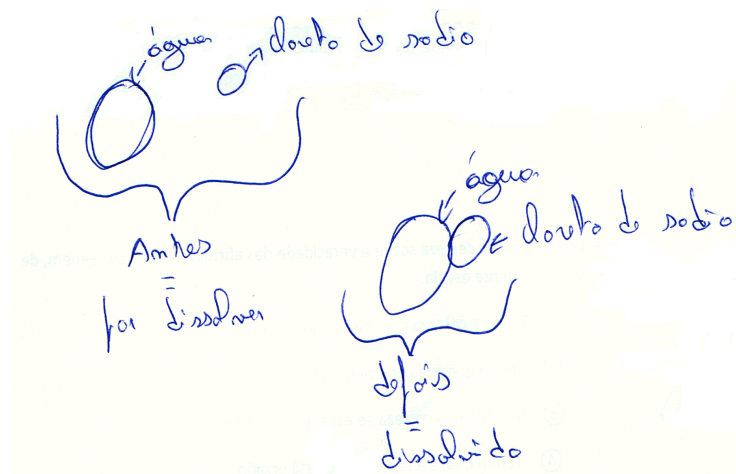 água
cloreto de sodio
Antes
=
por dissolver
água
cloreto de sodio
depois
=
dissolvido